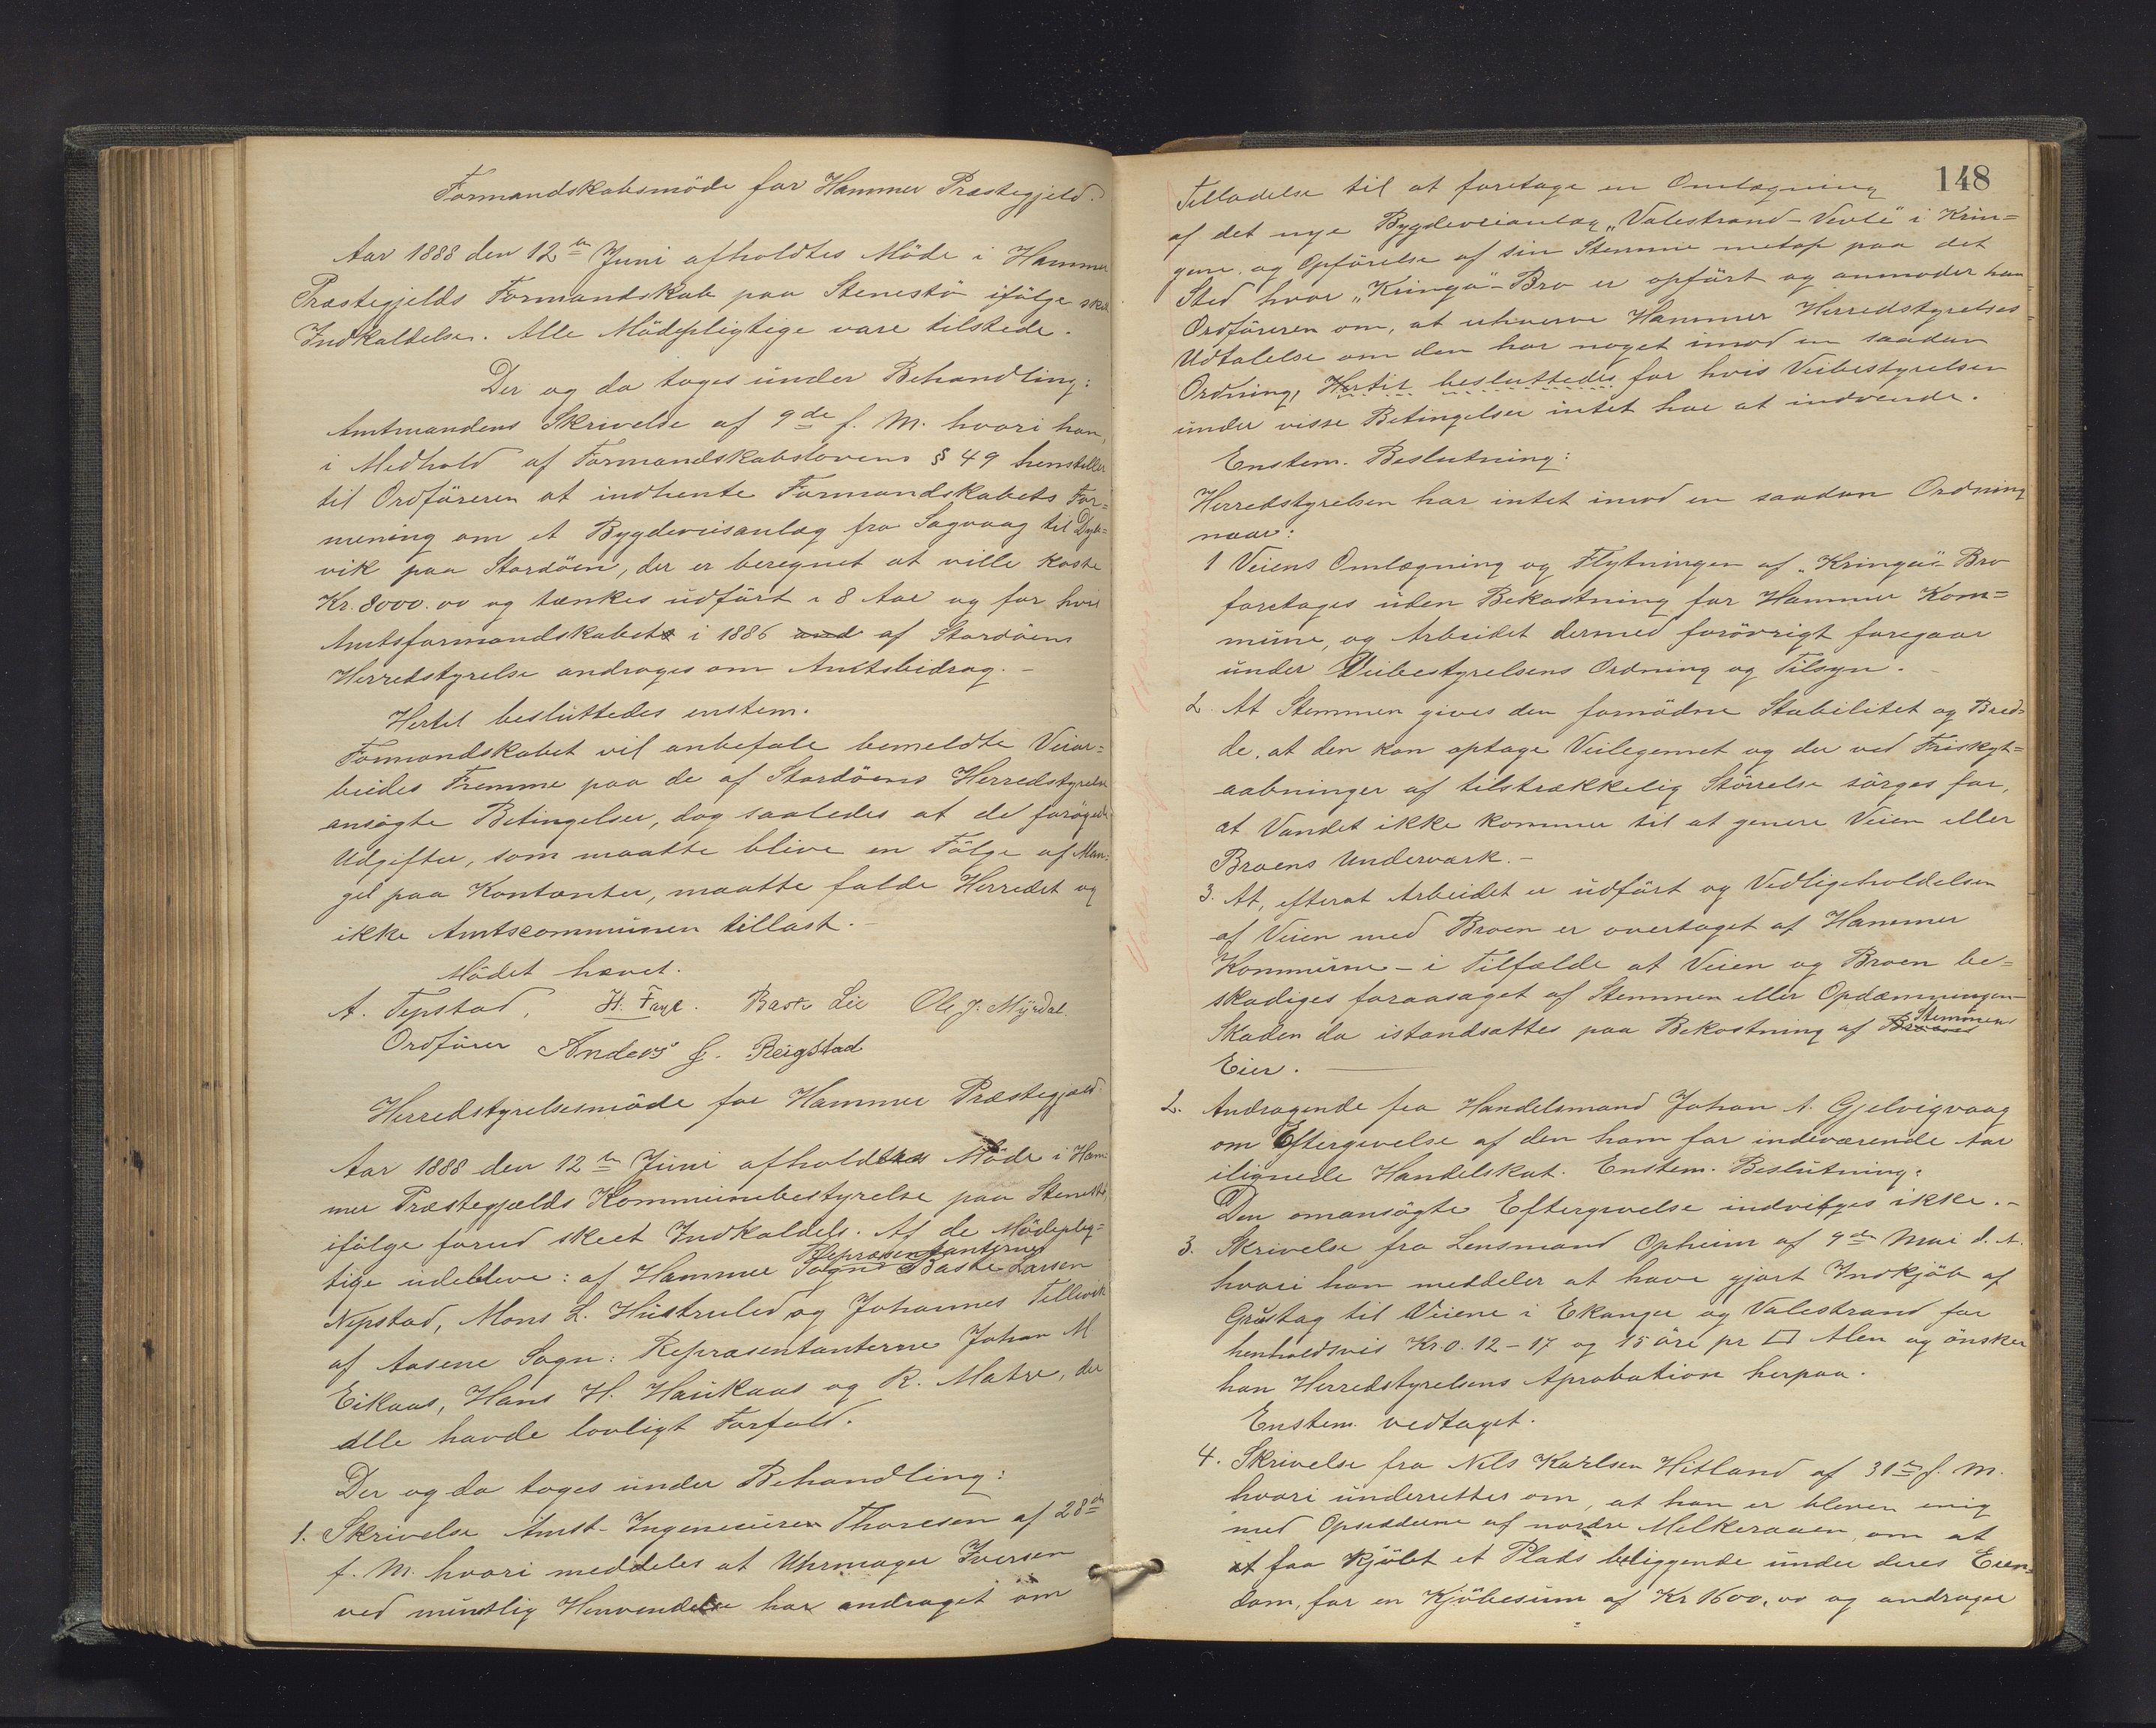 Formandskabsmöde for Hammer Præstegjeld.
Aar 1888 den 12te Juni afholdtes Möde i Hammer
Præstegjelds Formandskab paa Stenestö ifölge skeet
Indkaldelse. Alle Mödepligtige vare tilstede.
Der og da toges under Behandling:
Amtmandens Skrivelse af 9de f. M. hvori han,
i Medhold af Formandskabslovens § 49 henstiller
til Ordföreren at indhente Formandskabets For=
mening om et Bygdeveisanlæg fra Sagvaag til Dyb=
vik paa Stordöen, der er beregnet at ville koste
Kr. 8000.00 og tænkes udfört i 8 Aar og for hvis
Amtsformandskabet i 1886 and af Stordöens
Herredstyrelse androges om Amtsbidrag. –
Hertil besluttedes enstem.
Formandskabet vil anbefale bemeldte Veiar=
beides Fremme paa de af Stordöens Herredstyrelse
ansögte Betingelser, dog saaledes at de forögede
Udgifter, som maatte blive en Fölge af Man=
gel paa Kontanter, maatte falde Herredet og
ikke Amtscommunen tillast. –
Mödet hævet.
A. Tepstad, H. Faye. Baste Lie Ole J. Myrdal.
Ordförer Anders J. Reigstad
Herredstyrelsesmöde for Hammer Præstegjæld.
Aar 1888 den 12te Juni afholdtes Möde i Ham=
mer Præstegjælds Kommunebestyrelse paa Stenestö,
ifölge forud skeet Indkaldelse. Af de Mödeplig=
tige udebleve: af Hammer Sogn Repræsentanterne Baste Larsen
Nepstad, Mons L. Hustruled og Johannes Tellevik
af Aasene Sogn: Repræsentanterne Johan M
Eikaas, Hans H. Haukaas og R. Matre, der
alle havde lovligt Forfald.
Der og da toges under Behandling:
1. Skrivelse Amst-Ingeneiuren Thoresen af 28de
f. M. hvori meddeles at Uhrmager Iversen
ved mundtlig Henvendelse har andraget om
148
Tilladelse til at foretage en Omlægning
af det nye Bygdeveianlæg „Valestrand-Vevle" i Krin=
gene og Opförelse af sin Stemme netop paa det
Sted hvor „Kringö"-Bro er opfört og anmoder han
Ordföreren om, at erhverve Hammer Herredstyrelses
Udtalelse om den har noget imod en saadan
Ordning, Hertil besluttedes for hvis Veibestyrelsen
under visse Betingelser intet har at indvende.
Enstem. Beslutning:
Herredstyrelsen har intet imod en saadan Ordning
naar:
1 Veiens Omlægning og Flytningen af „Kringö"-Bro
foretages uden Bekostning for Hammer Kom=
mune, og Arbeidet dermed forövrigt foregaar
under Veibestyrelsens Ordning og Tilsyn. –
2. At Stemmen gives den fornödne Stabilitet og Bred=
de, at den kan optage Veilegemet og der ved Friskyt=
aabninger af tilstrækkelig Störrelse sörges for,
at Vandet ikke kommer til at genere Veien eller
Broens Underværk. –
3. At, efterat Arbeidet er udfört og Vedligeholdelsen
af Veien med Broen er overtaget af Hammer
Kommune – i Tilfælde at Veien og Broen be=
skadiges foraarsaget af Stemmen eller Opdæmningen –
Skaden da istandsættes paa Bekostning af Broens Stemmens
Eier.
2. Andragende fra Handelsmand Johan A. Gjelvigvaag
om Eftergivelse af den ham for indeværende Aar
ilignede Handelskat. Enstem. Beslutning:
Den omansögte Eftergivelse indvilges ikke. –
3. Skrivelse fra Lensmand Opheim af 9de Mai d. A.
hvori han meddeler at have gjort Indkjöb af
Grustag til Veiene i Ekanger og Valestrand for
henholdsvis Kr. 0. 12 – 17 og 15 öre pr □ Alen og önsker
han Herredstyrelsens Aprobation herpaa.
Enstem. vedtaget.
4. Skrivelse fra Nils Karlsen Hitland af 31te f. M.
hvori underrettes om, at han er bleven enig
med Opsidderne af nordre Melkeraaen om at
at faa kjöbt et Plads beliggende under deres Eien=
dom, for en Kjöbesum af Kr 1600,00 og andrager